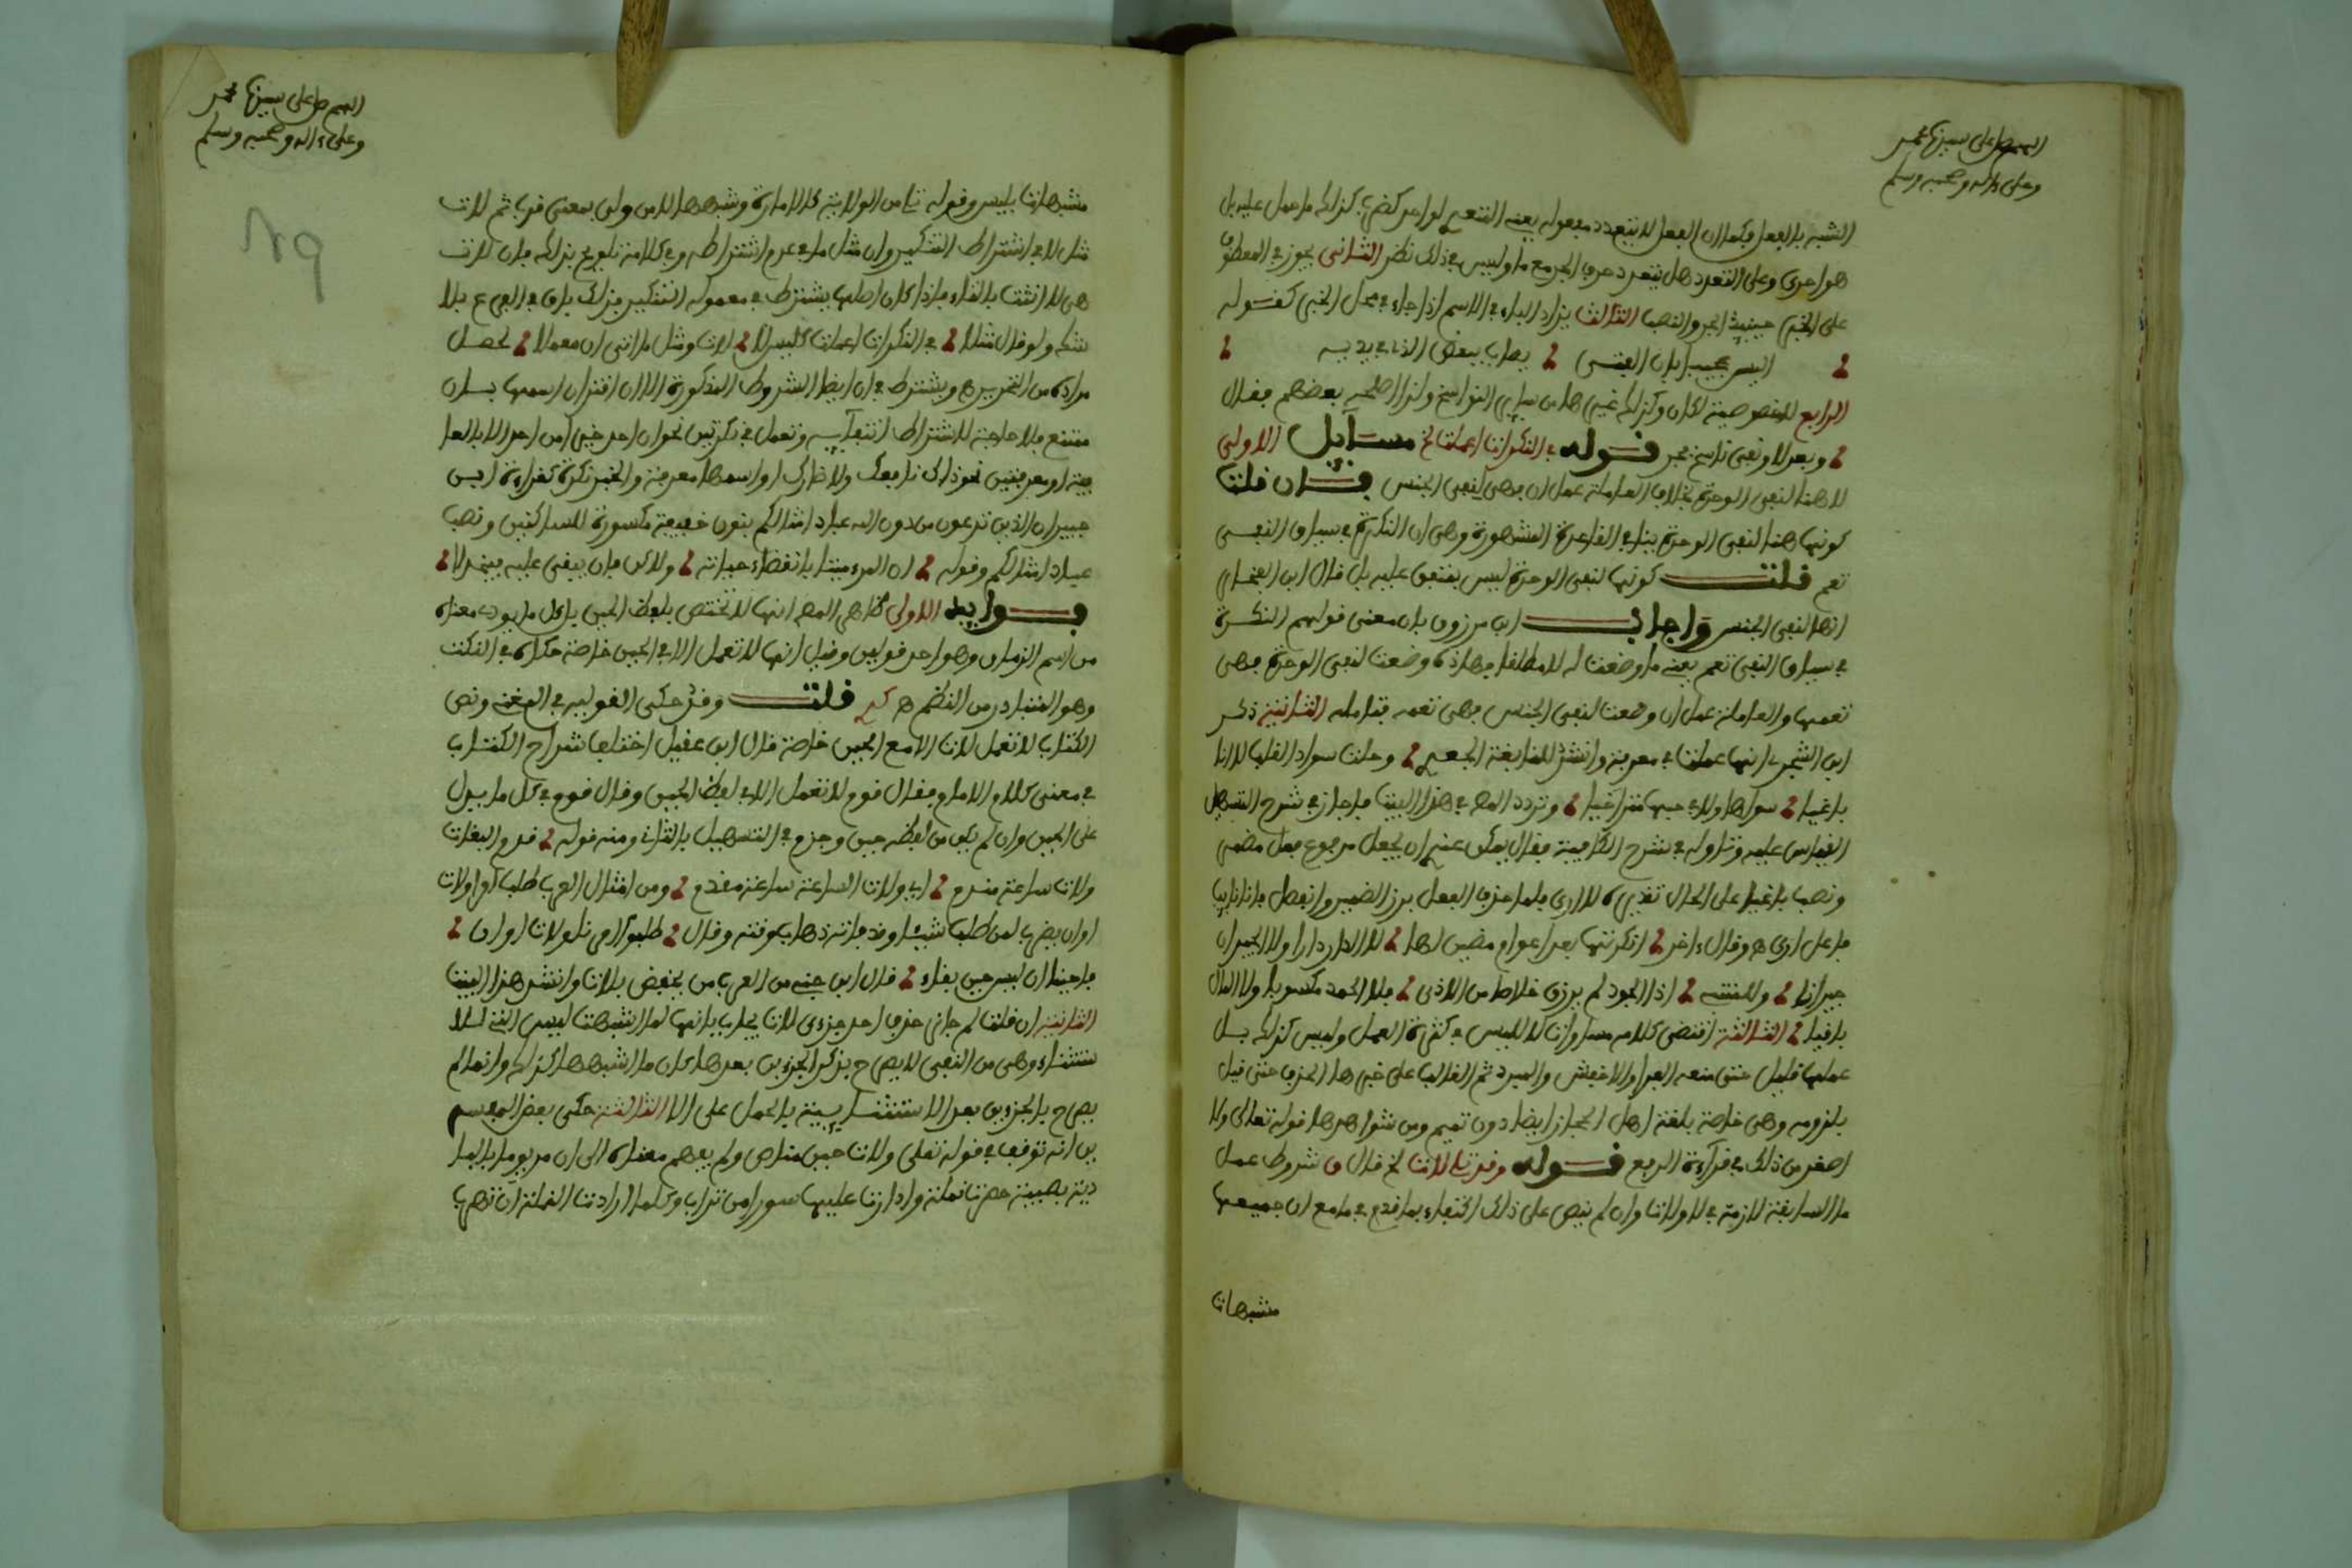 اللهم صل على سيدنا محمد
وعلى ءاله وصحبه وسلم
الشبه بالفعل فكما ان الفعل لا يتعدد مفعوله يعني المتعدي لواحد كضرب كذلك ما حمل عليه بل
هو احرى وعلى التعدد هل يتعدد حرف الجر مع ما وليس في ذلك نظر الثاني يجوز في المعطوف
على الخبر حينئذ الجر والنصب الثالث يزاد الباء في الاسم اذا جاء في محل الخبر كقوله
اليس عجيبا بان الفتى يصاب ببعض الذي في يديه
الرابع لا خصوصية لكان وكذلك غيرها من سائر النواسخ ولذا اصلحه بعضهم فقال
وبعد لا ونفي ناسخ يجر قوله في النكرات اعملت الخ مسايل الاولى
لا هنا لنفي الوحدة بخلاف العاملة عمل ان فهي لنفي الجنس فان قلت
كونها هنا لنفي الوحدة ينافي القاعدة المشهورة وهي ان النكرة في سياق النفي
تعم قلت كونها لنفي الوحدة ليس بمتفق عليه بل قال ابن الفخار
انها لنفي الجنس واجاب ابن مرزوق بان معنى قولهم النكرة
في سياق النفي تعم يعني ما وضعت له لا مطلقا فهاذه وضعت لنفي الوحدة فهي
تعمها والعاملة عمل ان وضعت لنفي الجنس فهي تعمه فتامله الثانية ذكر
ابن الشجري انها عملت في معرفة وانشد للنابغة الجعدي وحلت سواد القلب لا انا
باغيا سواها ولا في حبها متراخيا وتردد المص في هذا البيت فاجاز في شرح التسهيل
القياس عليه وتاوله في شرح الكافية فقال يمكن عندي ان يجعل مرفوع فعل مضمر
ونصب باغيا على الحال تقديره لا ارى فلما حذف الفعل برز الضمير وانفصل فانا نائب
فاعل ارى ه وقال ءاخر انكرتها بعد اعوام مضين لها لا الدار دارا ولا الجيران
جيرانا وللمتنبي اذا الجود لم يرزق خلاصا من الاذى فلا الحمد مكسوبا ولا المال
باقيا الثالثة اقتضى كلامه مساوات لا لليس في كثرة العمل وليس كذلك بل
عملها قليل حتى منعه الفرا والاخفش والمبرد ثم الغالب على خبرها الحذف حتى قيل
بلزومه وهي خاصة بلغة اهل الحجاز ايضا دون تميم ومن شواهدها قوله تعالى ولا
اصغر من ذلك في قرآءة الرفع قوله وقد تلي لات الخ قال ق شروط عمل
ما السابقة لازمة في لا ولات وان لم ينص على ذلك اكتفاء بما قدم في ما مع ان جميعها
مشبهات
اللهم صل على سيدنا محمد
وعلى ءاله وصحبه وسلم
مشبهات بليس وقوله تلي من الولاية كالامارة وشبهها لا من ولي بمعنى قرب ثم لات
مثل لا في اشتراط التنكير وان مثل ما في عدم اشتراطه وفي كلامه تلويح بذلك فان لات
هي لا انثت بالتاء فاذا كان اصلها يشترط في معموله التنكير فذلك باق في الفرع بلا
شك ولو قال مثلا في النكرات اعملت كليس لا لات ومثل ما اتى ان معملا لحصل
مراده من التحرير ه ويشترط في ان ايضا الشروط المذكورة الا ان اقتران اسمها بان
ممتنع فلا حاجة لاشتراط انتفآيه وتعمل في نكرتين نحو ان احد خيرا من احد الا بالعا
فية او معرفتين نحو ان ذلك نافعك ولا ضارك او اسمها معرفة والخبر نكرة كقراءة ابن
جبير ان الذين تدعون من دون الله عبادا امثالكم بنون خفيفة مكسورة للساكنين ونصب
عبادا امثالكم وقوله ان المرء ميتا بانقضاء حياته ولاكن بان يبغى عليه فيخذلا
فوايد الاولى ظاهر المص انها لا تختص بلفظ الحين بل كل ما يودي معناه
من اسم الزمان وهو احد قولين وقيل انها لا تعمل الا في الحين خاصة حكاه في النكت
وهو المتبادر من النظم ه قلت وقد حكى القولين في المغني ونص
الكتاب لا تعمل لات الا مع الحين خاصة قال ابن عقيل اختلف شراح الكتاب
في معنى كلام الامام فقال قوم لا تعمل الا في لفظ الحين وقال قوم في كل ما يدل
على الحين وان لم يكن من لفظه حين وجزم في التسهيل بالثاني ومنه قوله ندم البغات
ولات ساعة مندم اي ولات الساعة ساعة مندم ومن امثال العرب طلب ولات
اوان يضرب لمن طلب شيئا وقد فاته ذهاب وقته وقال طلبوا صلحنا ولات اوان
فاجبنا ان ليس حين بقاء قال ابن جني من العرب من يخفض بلات وانشد هذا البيت
الثانية ان قلت لم جاز حذف احد جزءي لات يجاب بانها لما اشبهت ليس التي للا
ستثناء وهي من النفي لا يصرح بذكر الجزءين بعدها كان ما اشبهها كذلك وانما لم
يصرح بالجزءين بعد الاستثنايية بالحمل على الا الثالثة حكى بعض المفسر
ين انه توقف في قوله تعلى ولات حين مناص ولم يفهم معناه الى ان مر يوما بالبا
دية بصبية حصرت نملة وادارت عليها سورا من تراب وكلما ارادت النملة ان تهرب